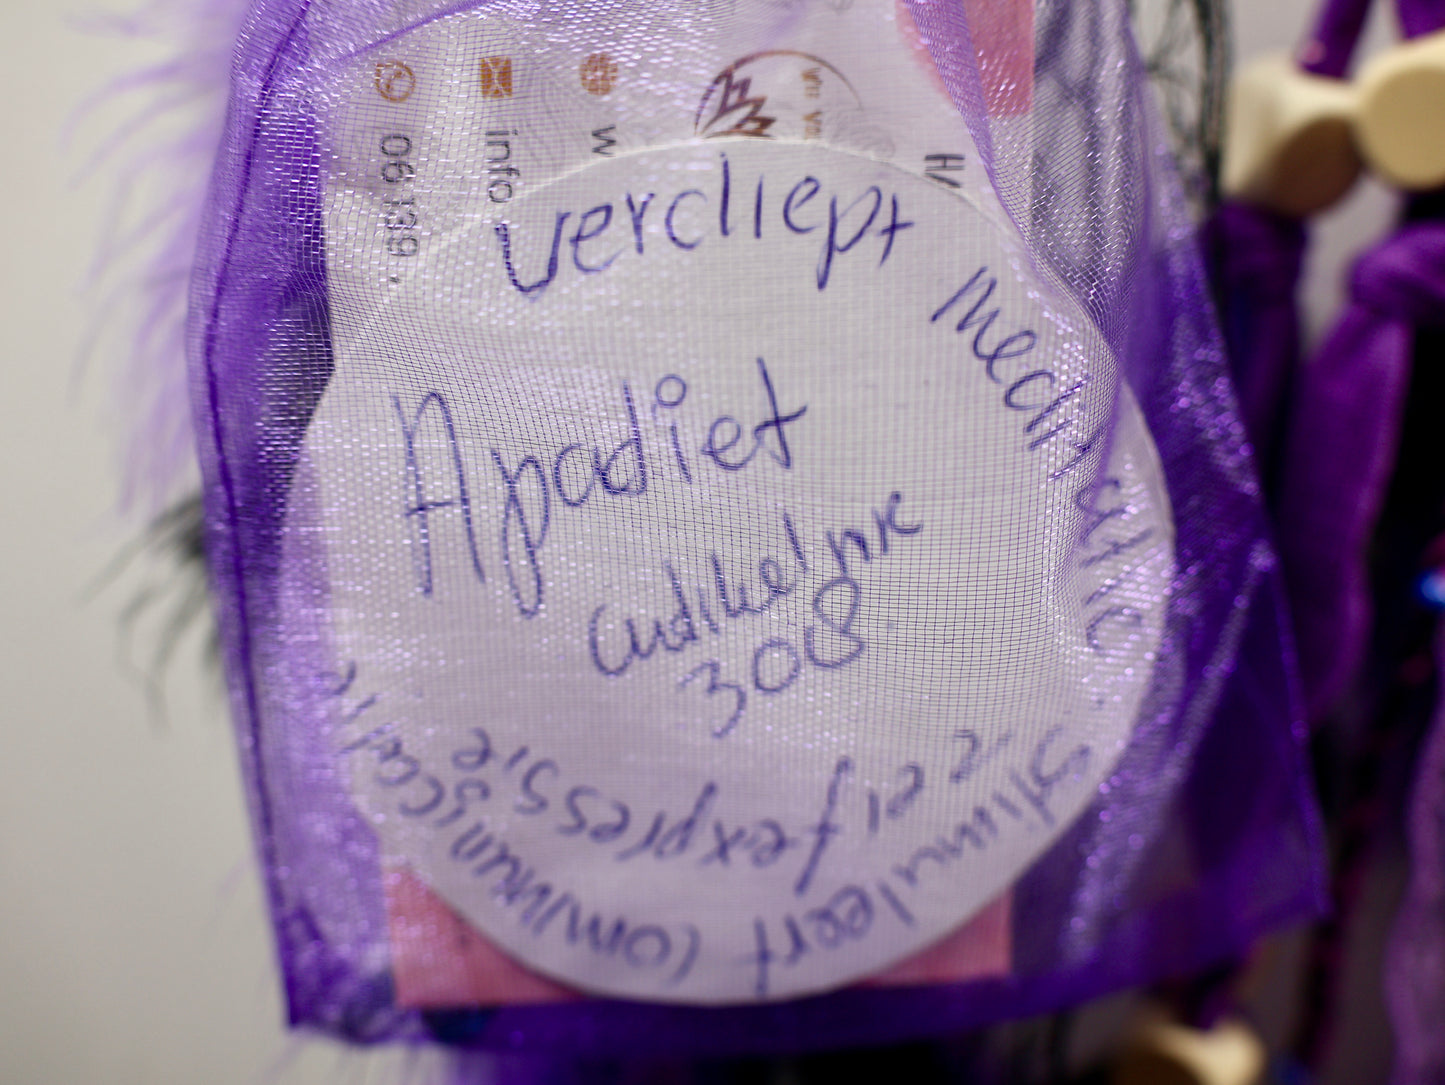 06 139
info
w
verdiept
Meditatie.
Apadiet
enkelvink
308
stimuleert communicatie
zelfexpressie